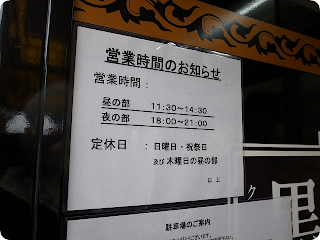 営業時間のお知らせ
営業時間：
昼の部 11:30～14:30
夜の部 18:00～21:00
定休日：日曜日・祝祭日
及び木曜日の昼の部
以上
ク
黒
駐車場のご案内